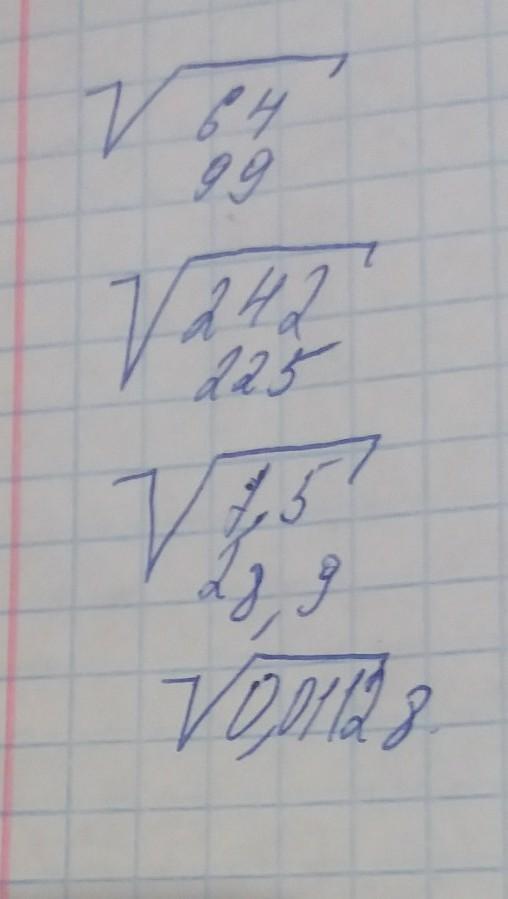 √64
99
√242
225
√7,5
28,9
√0,01128